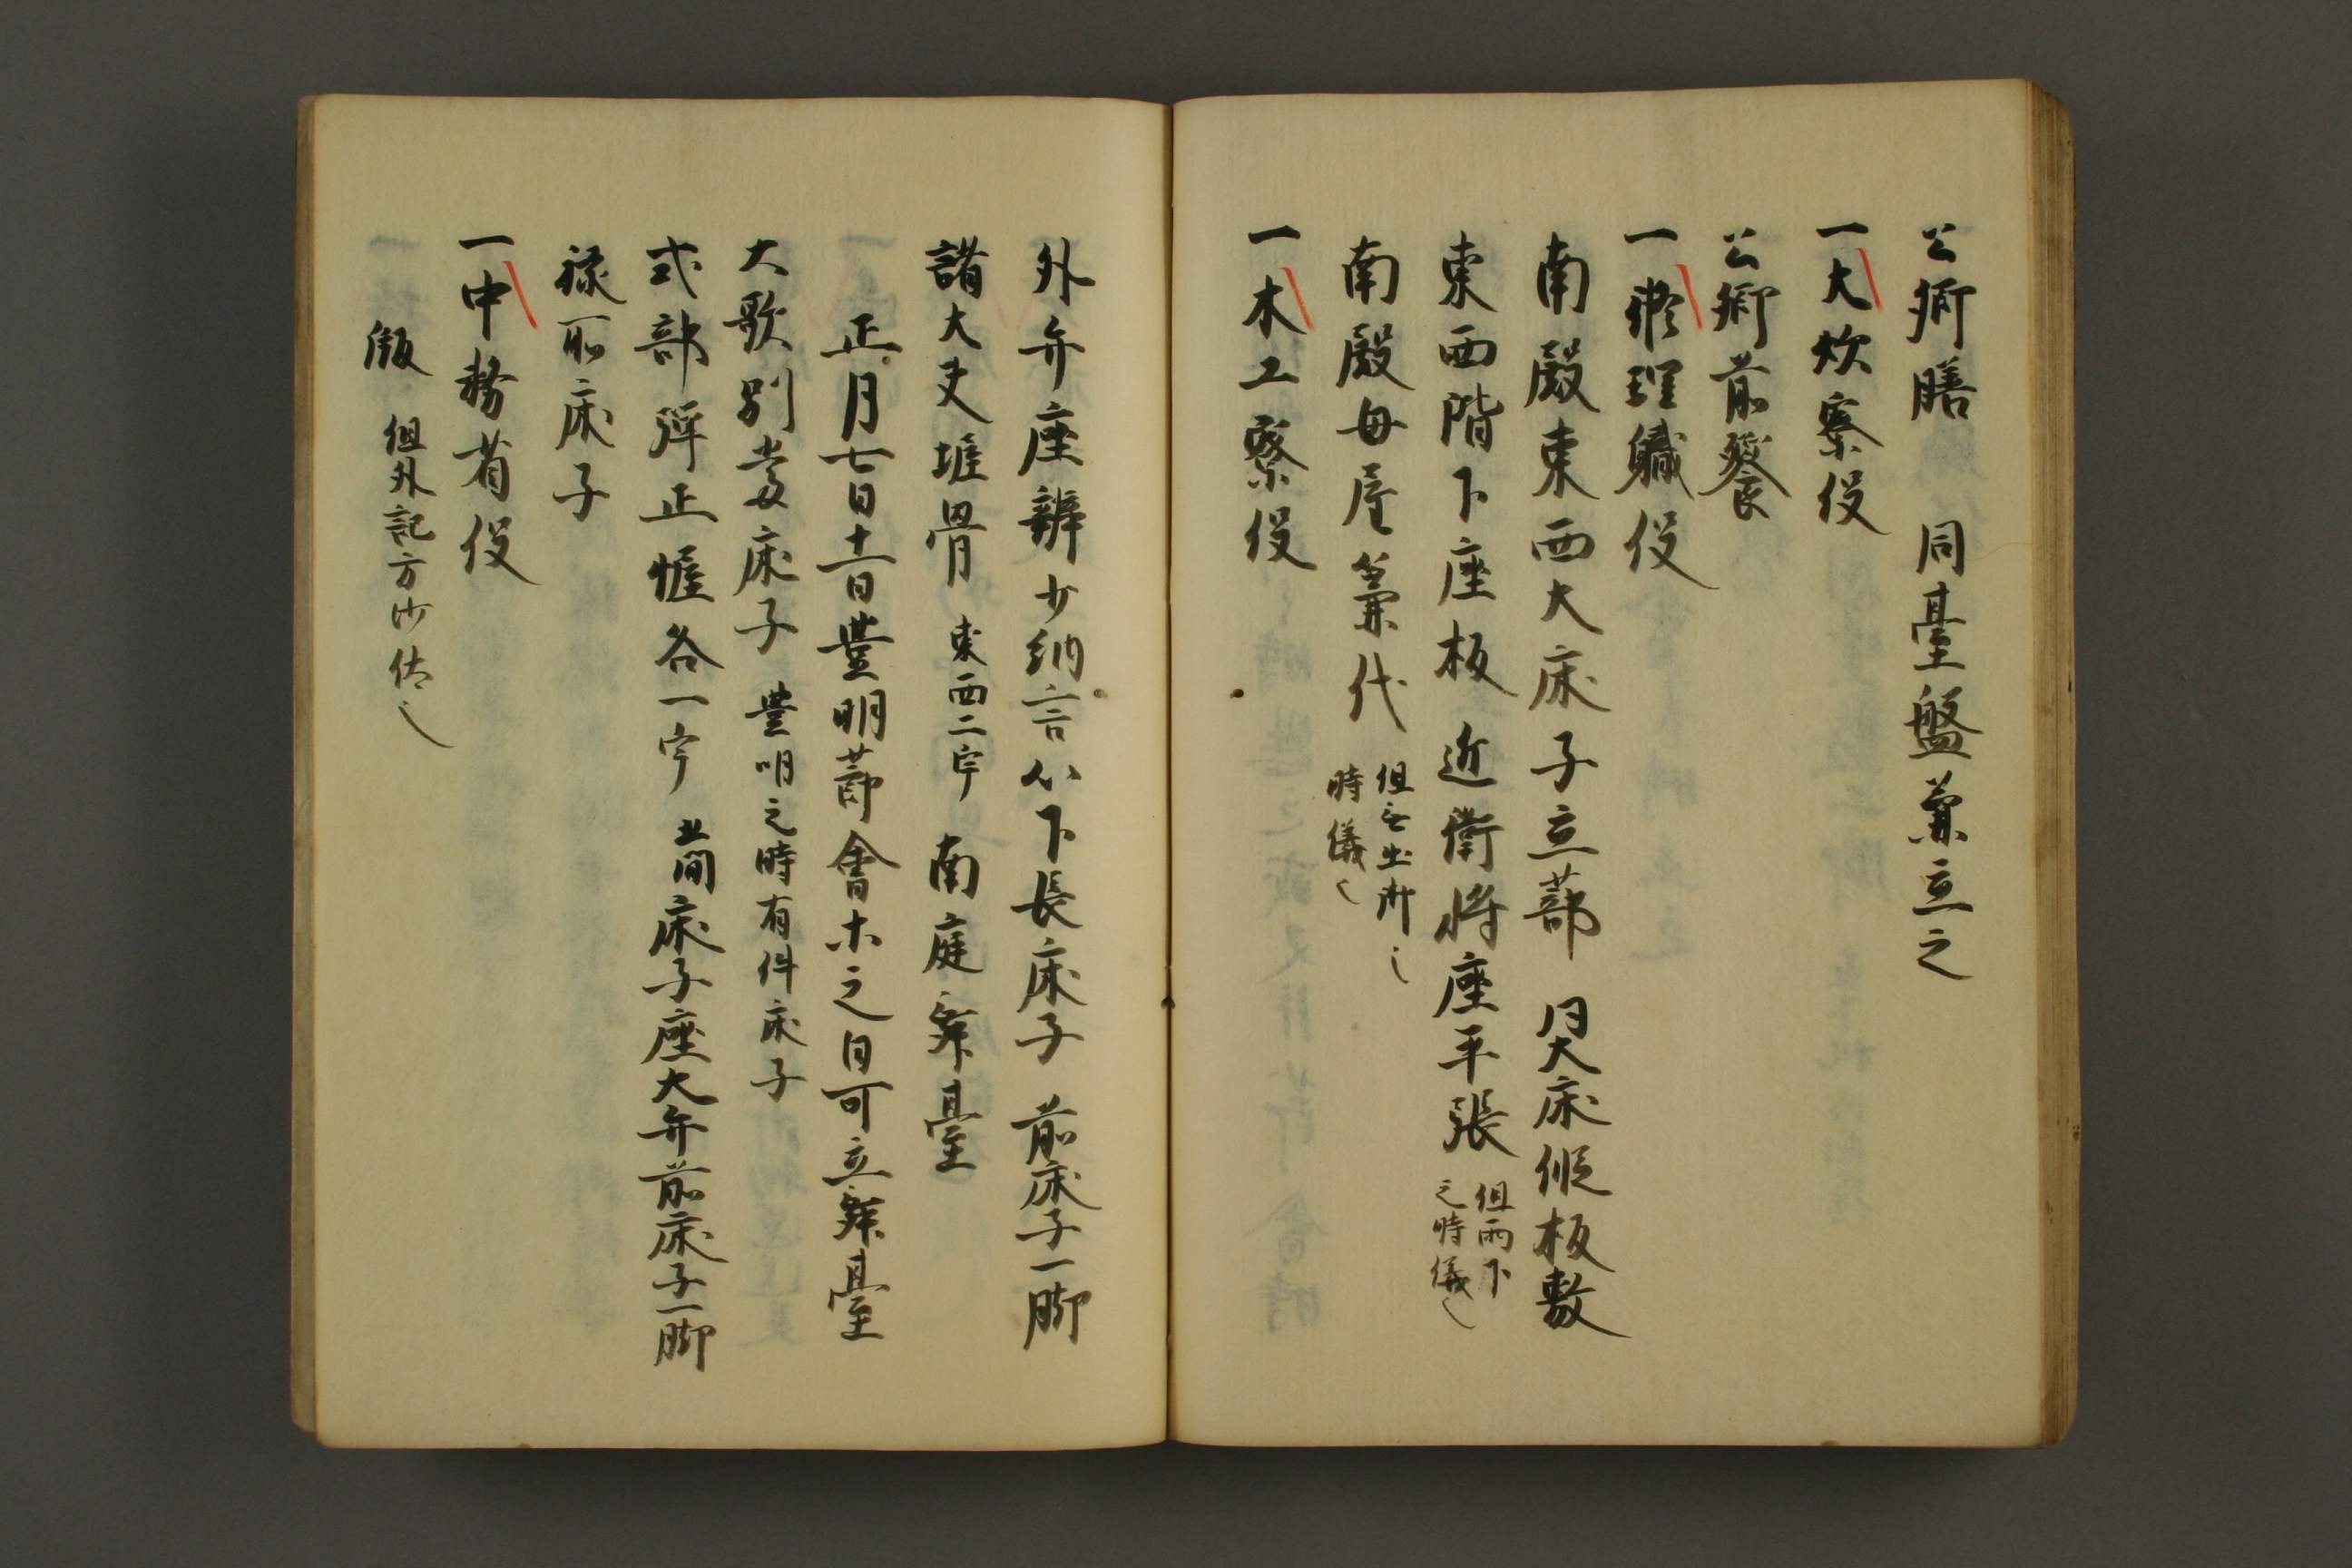 公卿膳　同臺盤兼立之
一大炊寮役
公卿前餐
一修理職役
南殿東西大床子立蔀　同大床假板敷
東西階下座板　近衛将座平張　但雨下之時儀也
南殿母屋簾代　但無出御之時儀也
一木工寮役
外弁座辨少納言以下長床子　前床子一脚
諸大夫握骨　東西二宇　南庭舞臺
正月七日十一日豊明莭會木之日可立舞臺
大歌別當床子　豊明之時有件床子
式部弾正幄各一宇　北間床子座大弁前床子一脚
禄所床子
一中務省役
版　但外記方沙佐也